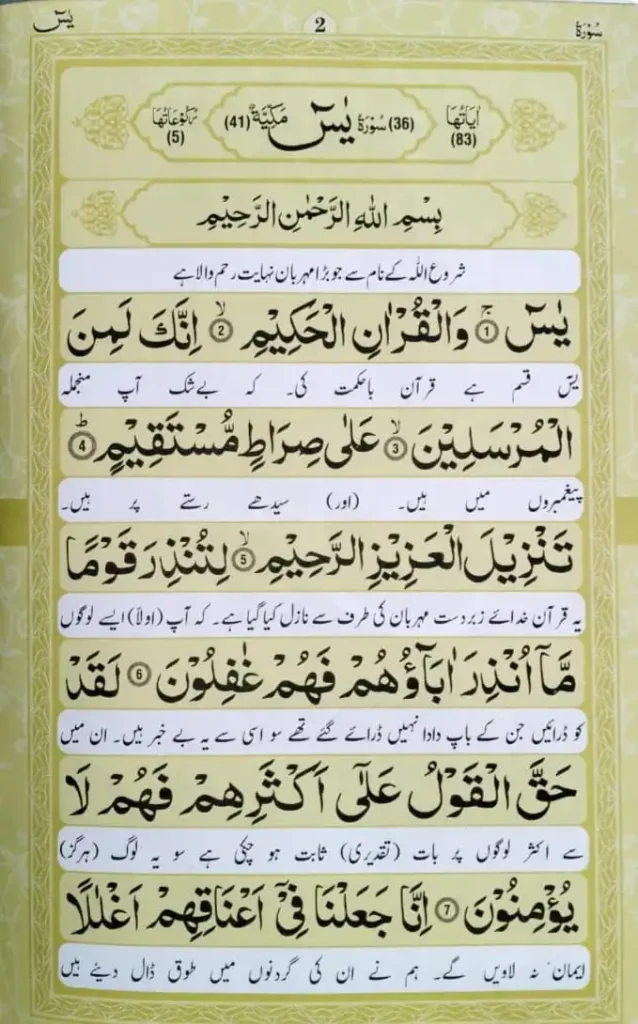 سُوْرَةُ 2 يٰسٓ
اٰيَاتُهَا (83) (36) سُوْرَةُ يٰسٓ مَكِّيَّةٌ (41) رُكُوْعَاتُهَا (5)
بِسْمِ اللهِ الرَّحْمٰنِ الرَّحِيْمِ
شروع اللہ کے نام سے جو بڑا مہربان نہایت رحم والا ہے
يٰسٓ ۚ ① وَالْقُرْاٰنِ الْحَكِيْمِ ۙ ② اِنَّكَ لَمِنَ
یٰسٓ قسم ہے قرآن باحکمت کی۔ کہ بے شک آپ منجملہ
الْمُرْسَلِيْنَ ۙ ③ عَلٰى صِرَاطٍ مُّسْتَقِيْمٍ ؕ ④
پیغمبروں میں ہیں۔ (اور) سیدھے رستے پر ہیں۔
تَنْزِيْلَ الْعَزِيْزِ الرَّحِيْمِ ۙ ⑤ لِتُنْذِرَ قَوْمًا
یہ قرآن خدائے زبردست مہربان کی طرف سے نازل کیا گیا ہے۔ کہ آپ (اولاً) ایسے لوگوں
مَّاۤ اُنْذِرَ اٰبَآؤُهُمْ فَهُمْ غٰفِلُوْنَ ⑥ لَقَدْ
کو ڈرائیں جن کے باپ دادا نہیں ڈرائے گئے تھے سو اسی سے یہ بے خبر ہیں۔ ان میں
حَقَّ الْقَوْلُ عَلٰۤى اَكْثَرِهِمْ فَهُمْ لَا
سے اکثر لوگوں پر بات (تقدیری) ثابت ہو چکی ہے سو یہ لوگ (ہرگز)
يُؤْمِنُوْنَ ⑦ اِنَّا جَعَلْنَا فِيْۤ اَعْنَاقِهِمْ اَغْلٰلًا
ایمان نہ لاویں گے۔ ہم نے ان کی گردنوں میں طوق ڈال دیئے ہیں